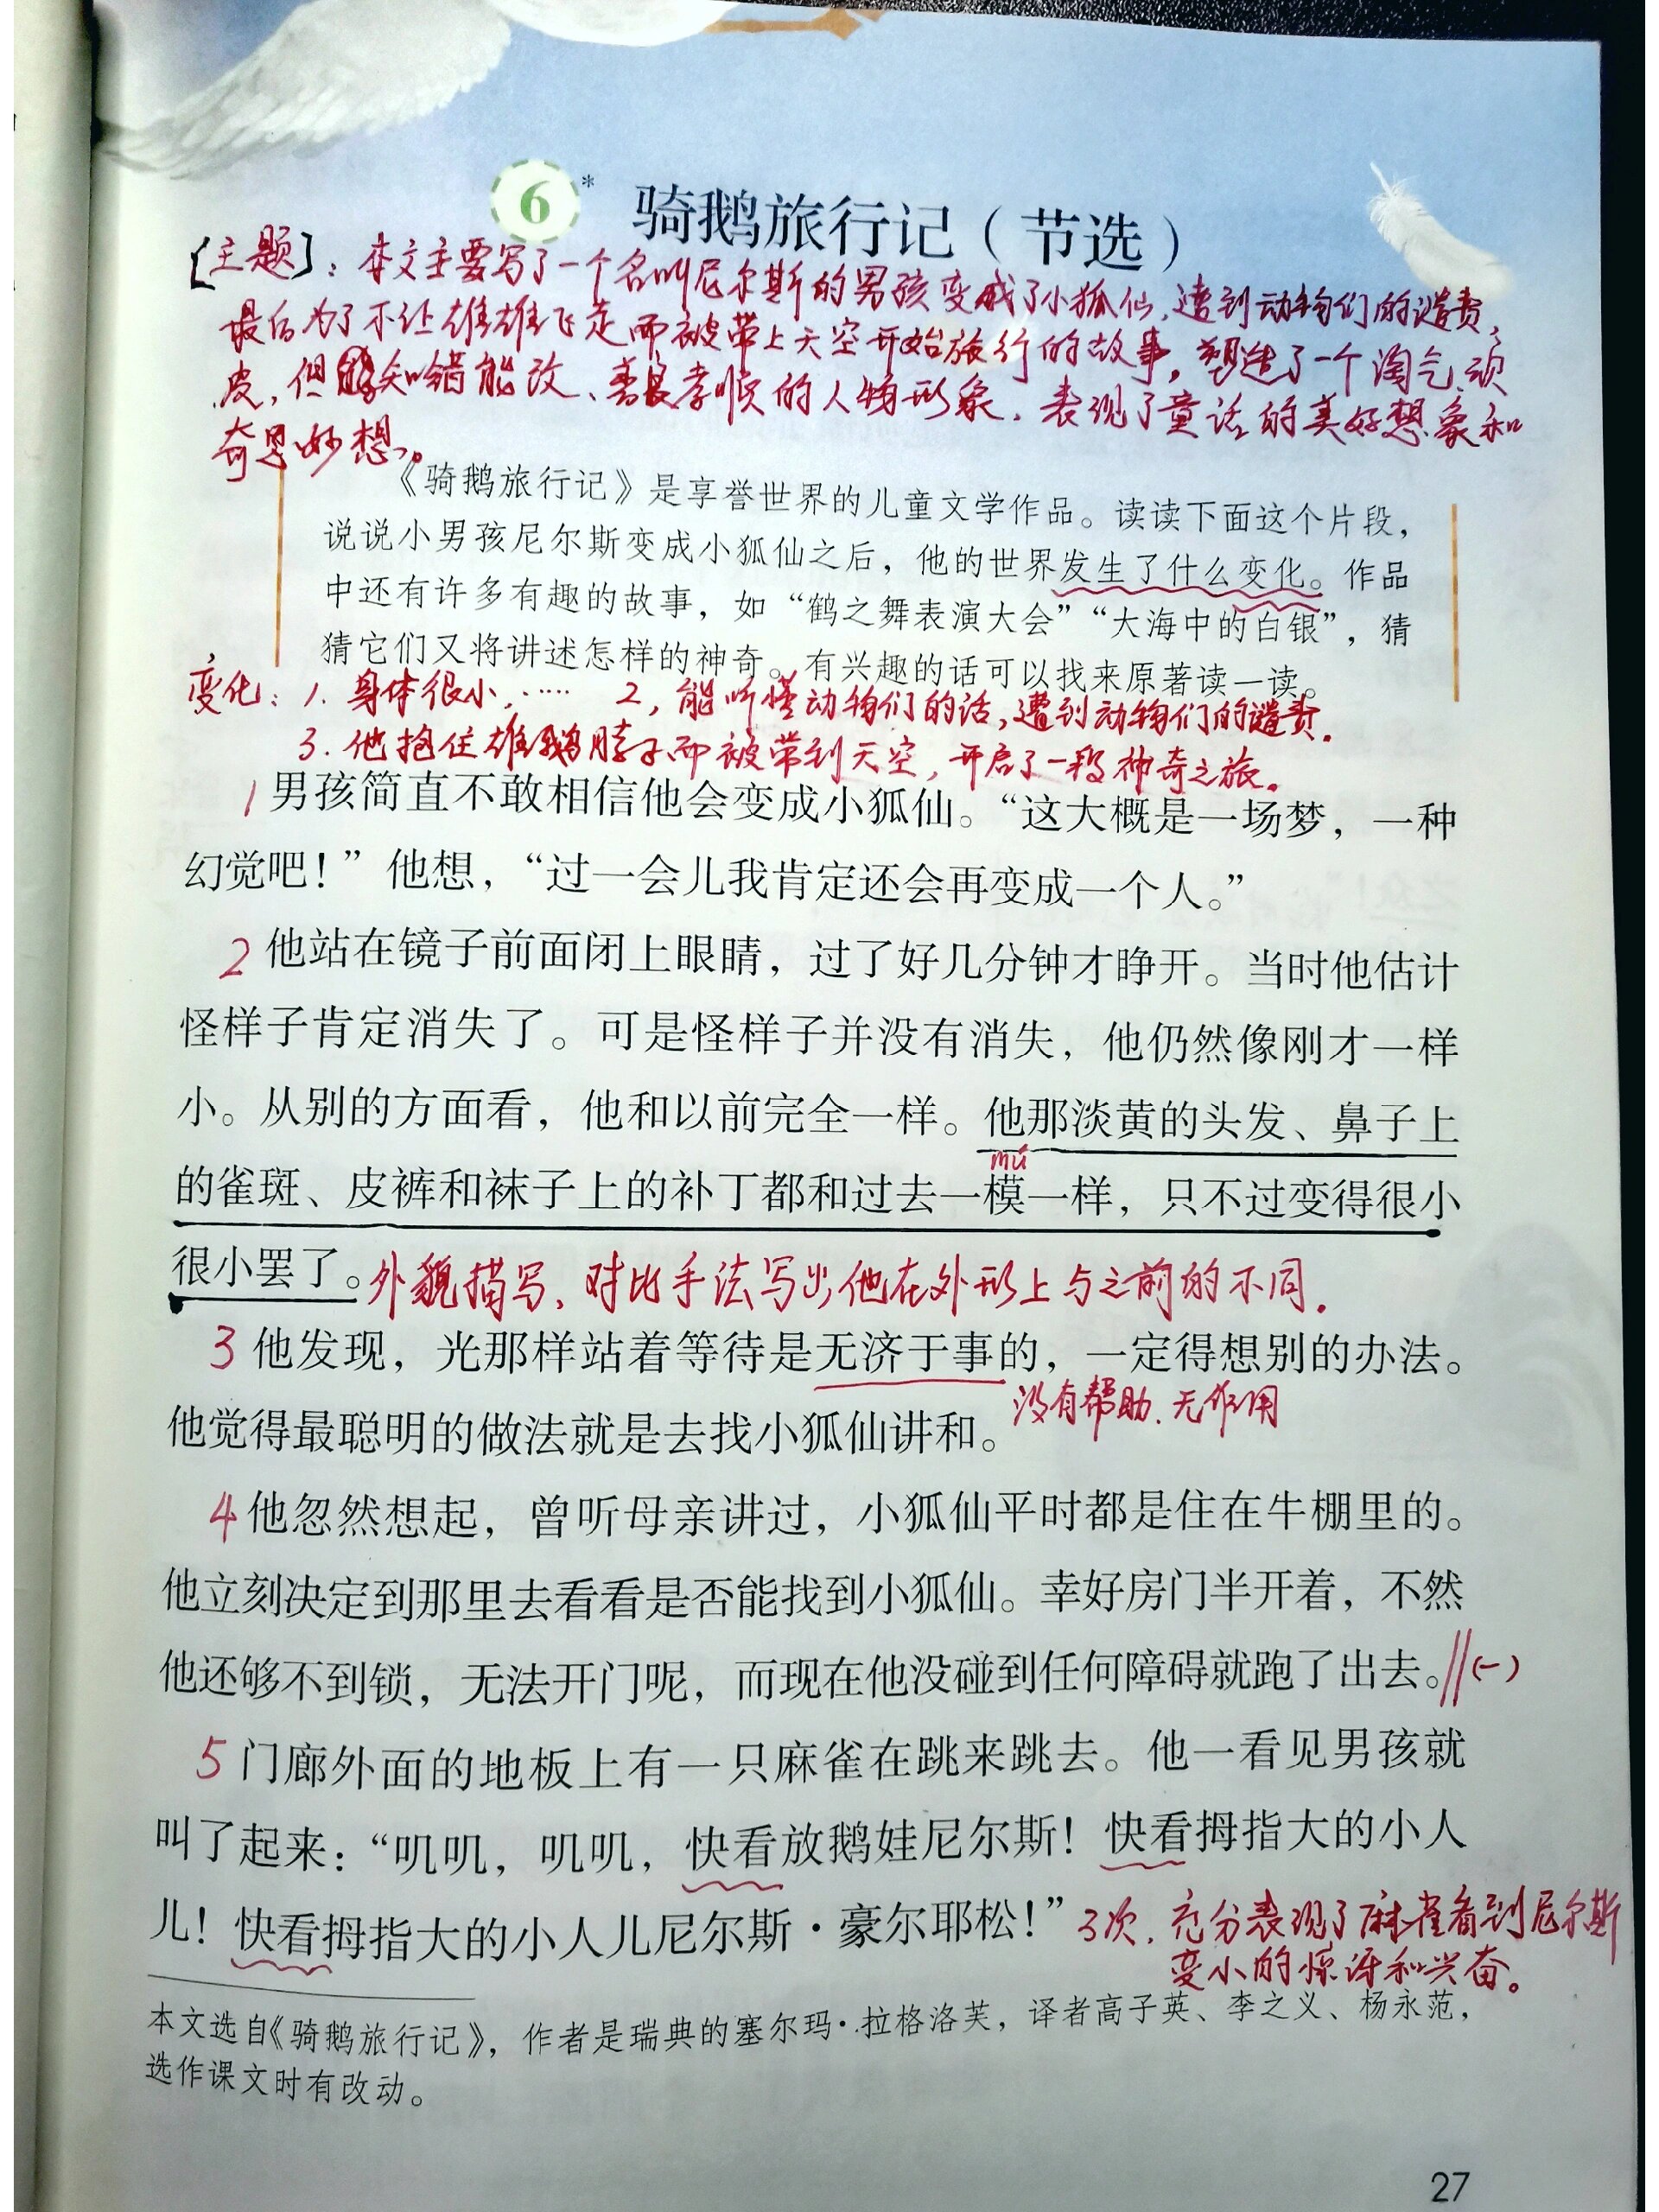 6* 骑鹅旅行记（节选）
[主题]：本文主要写了一个名叫尼尔斯的男孩变成了小狐仙，遭到动物们的谴责，
最后为了不让雄雄飞走而被带上天空开始旅行的故事，塑造了一个淘气、顽
皮，但知错能改、善良孝顺的人物形象，表现了童话的美好想象和
奇思妙想。
《骑鹅旅行记》是享誉世界的儿童文学作品。读读下面这个片段，
说说小男孩尼尔斯变成小狐仙之后，他的世界发生了什么变化。作品
中还有许多有趣的故事，如“鹤之舞表演大会”“大海中的白银”，猜
猜它们又将讲述怎样的神奇。有兴趣的话可以找来原著读一读。
变化：1. 身体很小，…… 2，能听懂动物们的话，遭到动物们的谴责．
3. 他抱住雄鹅脖子而被带到天空，开启了一段神奇之旅。
1 男孩简直不敢相信他会变成小狐仙。“这大概是一场梦，一种
幻觉吧！”他想，“过一会儿我肯定还会再变成一个人。”
2 他站在镜子前面闭上眼睛，过了好几分钟才睁开。当时他估计
怪样子肯定消失了。可是怪样子并没有消失，他仍然像刚才一样
小。从别的方面看，他和以前完全一样。他那淡黄的头发、鼻子上
mú
的雀斑、皮裤和袜子上的补丁都和过去一模一样，只不过变得很小
很小罢了。外貌描写，对比手法写出他在外形上与之前的不同．
3 他发现，光那样站着等待是无济于事的，一定得想别的办法。
没有帮助、无作用
他觉得最聪明的做法就是去找小狐仙讲和。
4 他忽然想起，曾听母亲讲过，小狐仙平时都是住在牛棚里的。
他立刻决定到那里去看看是否能找到小狐仙。幸好房门半开着，不然
他还够不到锁，无法开门呢，而现在他没碰到任何障碍就跑了出去。//(一)
5 门廊外面的地板上有一只麻雀在跳来跳去。他一看见男孩就
叫了起来：“叽叽，叽叽，快看放鹅娃尼尔斯！快看拇指大的小人
儿！快看拇指大的小人儿尼尔斯·豪尔耶松！”3次，充分表现了麻雀看到尼尔斯
变小的惊讶和兴奋。
本文选自《骑鹅旅行记》，作者是瑞典的塞尔玛·拉格洛芙，译者高子英、李之义、杨永范，
选作课文时有改动。
27